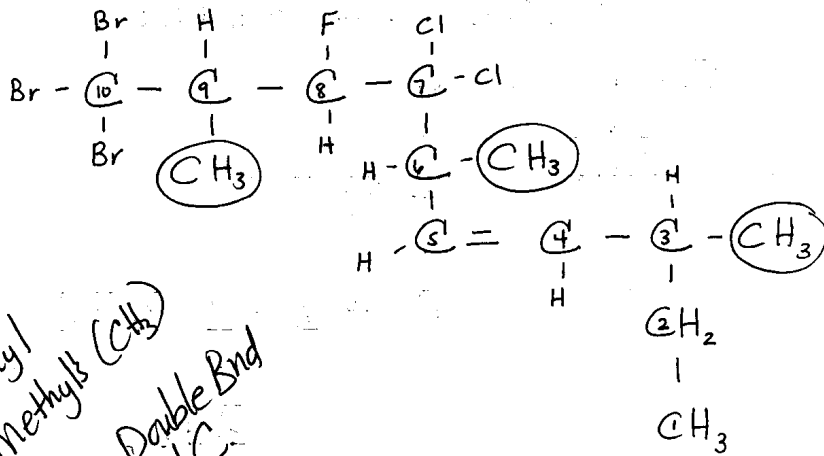 Br H F Cl
Br - C10 - C9 - C8 - C7 - Cl
Br CH3 H
H - C6 - CH3
H
H C5 = C4 - C3 - CH3
H
CH2
CH3
yl
methyls (CH3)
Double Bnd
C